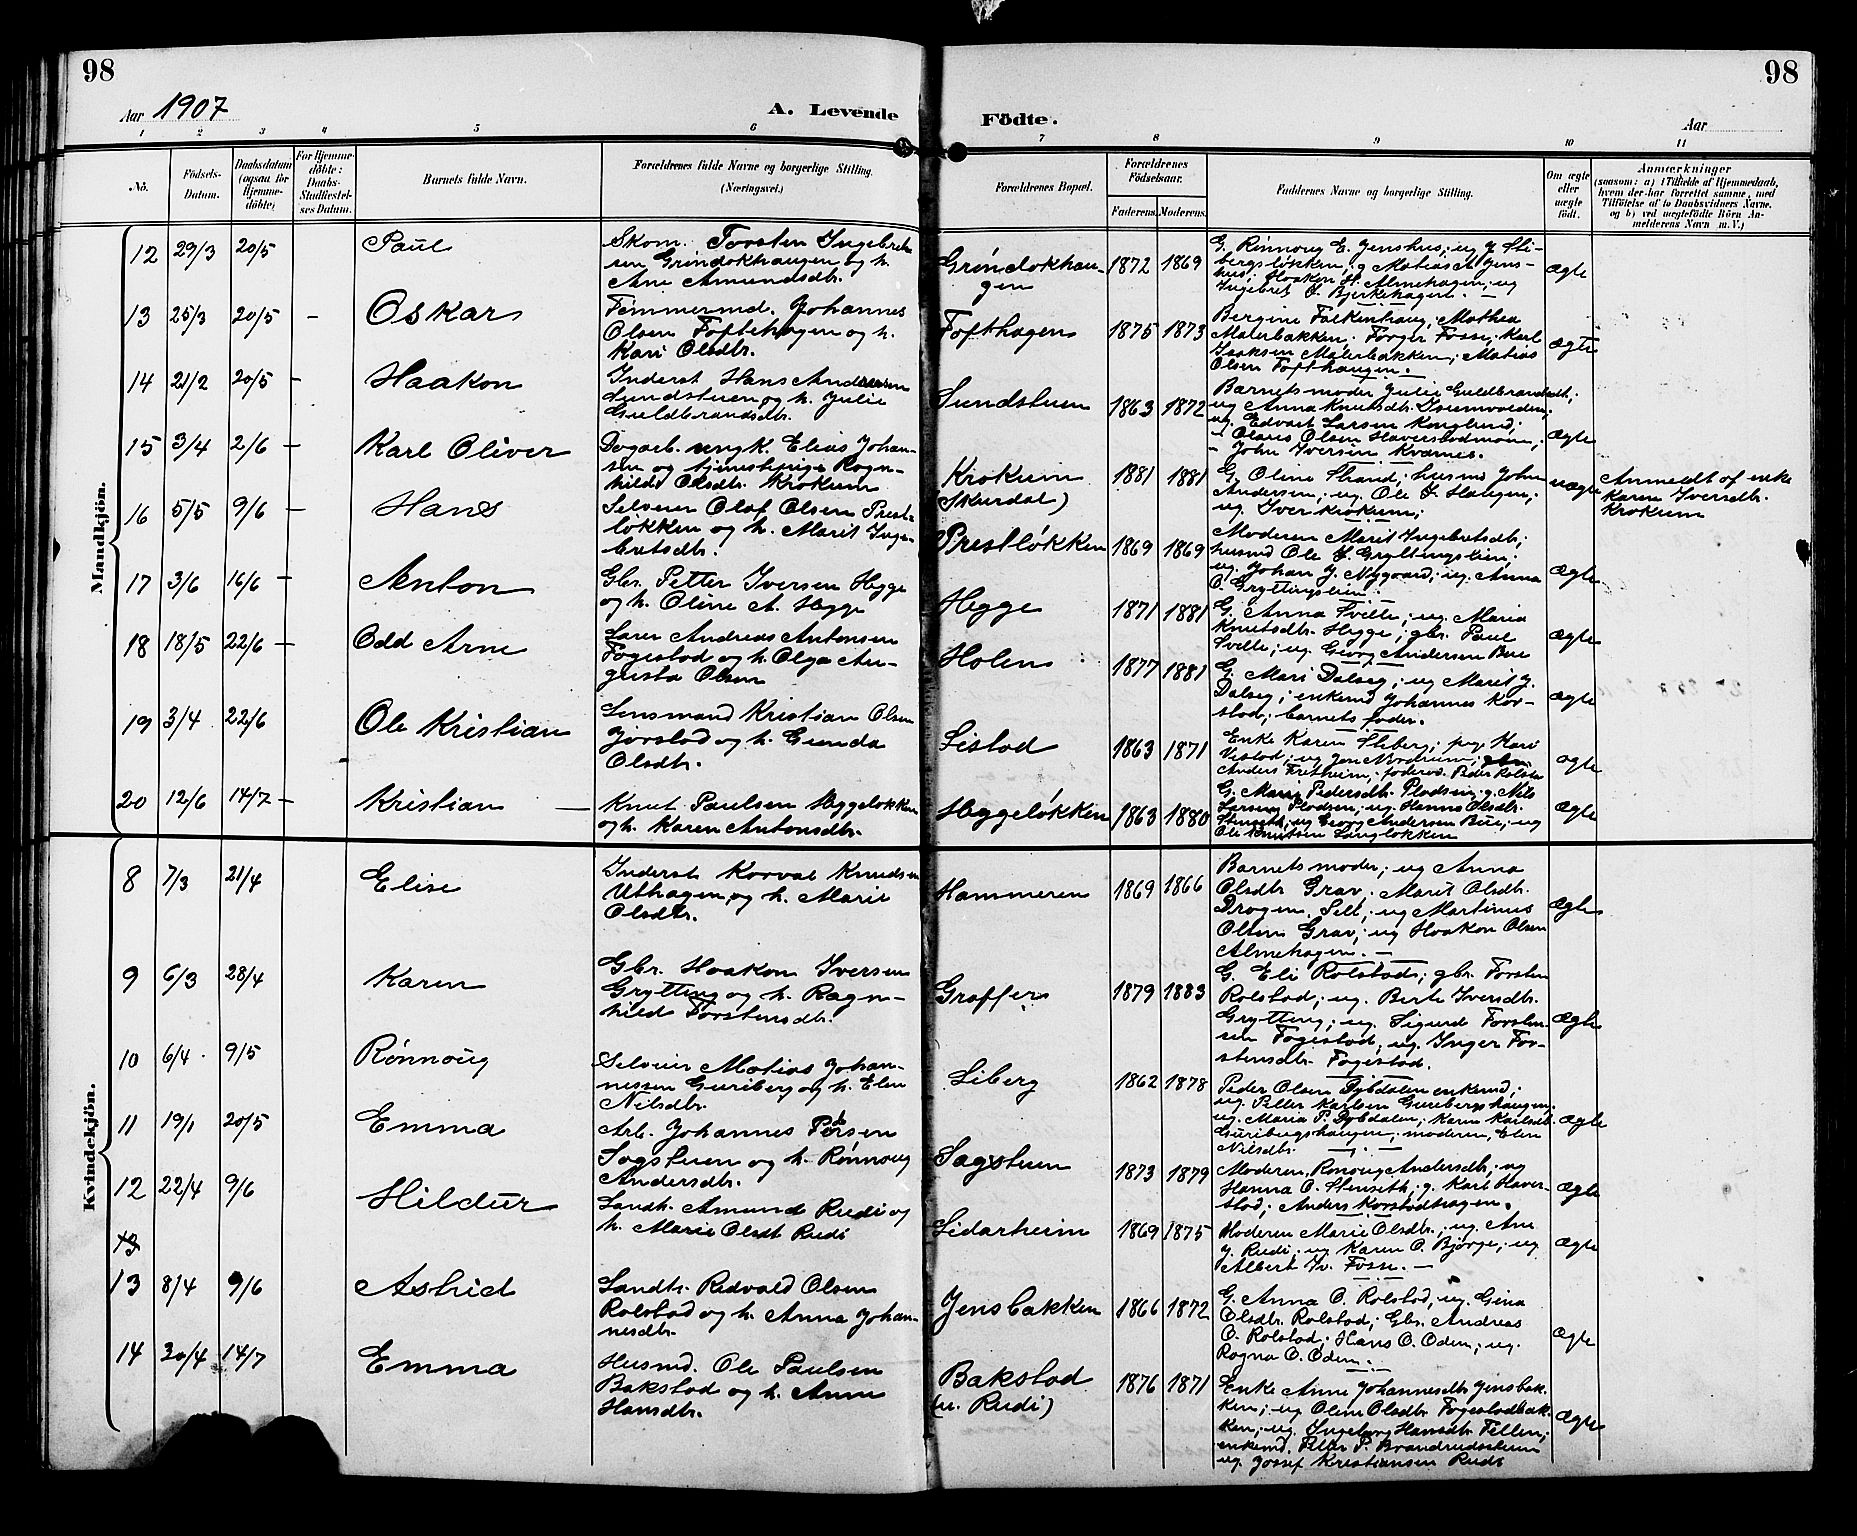 98
98
Aar 1907
A. Levende
Födte.
Aar
1 2 3 4 5 6 7 8 9 10 11
No.
Födsels-
Datum.
Daabsdatum
(ogsaa for
Hjemme-
döbte)
For Hjemme-
döbte:
Daabs-
Stadfæstel-
ses Datum.
Barnets fulde Navn.
Forældrenes fulde Navne og borgerlige Stilling.
(Næringsvei.)
Forældrenes Bopæl.
Forældrenes
Födselsaar.
Faderens. Moderens.
Faddernes Navne og borgerlige Stilling.
Om ægte
eller
uægte
födt.
Anmærkninger
(saasom: a) i Tilfælde af Hjemmedaab,
hvem der har forrettet samme, med
Tilföielse af to Daabsvidners Navne,
og b) ved uægtefödte Börn An-
melderens Navn m. V.)
Mandkjön.
12 29/3 20/5 Paul
Skom. Torsten Ingebret-
sen Grindokhaugen og h.
Ane Amundsdtr.
Gríndokhau-
gen
1872 1869
G. Rønnoug E. Jenshus; ug J. Sli-
bergsløkken; g Matias A Jens-
hus; Haakon H. Almehagen; ug
Ingebret O. Bjerkehagen. —
ægte
13 25/3 20/5 – Oskar
Tømmermd. Johannes
Olsen Toftehagen og h.
Kari Olsdtr.
Tofthagen
1875 1873
Bergine Falkenhaug, Mathea
Malerbakken. Torger Fosse; Karl
Isaksen Malerbakken; Matias
Olsen Tofthaugen. —
ægte
14 21/2 20/5 – Haakon
Inderst Hans Andersen
Sundstuen og h. Julie
Guldbrandsdtr.
Sundstuen
1863 1872
Barnets moder Julie Guldbrandsdt;
ug Anna Knutsdtr.
ug. Edvart Larsen Konglund;
" Olaus Olsen Haverstadmoen;
" John Iversen Kvarnes.
ægte
15 3/4 2/6 – Karl Oliver
Dagarb. ungk. Elias Johan-
sen og tjenestepige Ragn-
hild Olsdtr. Krokum
Krokum
(Skurdal)
1881 1881
G. Oline Strand; husmd John
Andersen; ug. Ole J. Haugen;
ug. Iver Krokum;
uægte
Anmeldt af enke
Karen Iversdtr.
Krokum
16 5/5 9/6 – Hans
Selveier Olaf Olsen Prest-
løkken og h. Marit Inge-
bretsdtr.
Prestløkken
1869 1869
Moderen Marit Ingebretsdtr;
husmd Ole S. Gryttingslien;
ug. Johan J. Nygaard; ug. Anna
O. Gryttingslien.
ægte
17 3/6 16/6 – Anton
Gbr. Petter Iversen Hegge
og h. Oline A. Hegge
Hegge
1871 1881
G. Anna Tvitte; ug Maria
Knutsdtr. Hegge; gbr. Paul
Tvitte; ug. Georg Andersen Bue
ægte
18 18/5 22/6 – Odd Arne
Lærer Andreas Antonsen
Fagestad og h. Olga Au-
gusta Olsen
Holen
1877 1881
G. Mari Dalseg; ug Marit J.
Dalseg; enkemd Johannes Kor-
stad; barnets fader.
ægte
19 3/4 22/6 Ole Kristian
Lensmand Kristian Olsen
Jorstad og h. Gunda
Olsdtr.
Listad
1863 1871
Enke Karen Sliberg; pige Kari
Vistad; ug Jon Nordrum;
Anders Tretheim; foderaad. Peder Rolstad
ægte
20 12/6 14/7 – Kristian —
Knut Paulsen Heggeløkken
og h. Karen Antonsdtr.
Heggeløkken
1863 1880
G. Mari Pedersdtr. Plodsen; g. Nils
Larsen Plodsen; ug. Hanna Olsdtr.
Stenseth; ug Georg Andersen Bue; ug
Ole Knutsen Langløkken
ægte
Kvindekjön.
8 7/3 21/4 Elise
Inderst Korval Knudsen
Uthagen og h. Marie
Olsdtr.
Hammeren
1869 1866
Barnets moder; ug Anna
Olsdtr Grav. Marit Olsdtr.
Drogen, Sell; ug Martinus
Olsen Grav; ug Haakon Olsen
Almehagen. —
ægte
9 6/3 28/4 Karen
Gbr. Haakon Iversen
Grytting og h. Ragn-
hild Torstensdtr.
Graffer
1879 1883
G. Eli Rolstad; gbr. Torsten
Rolstad; ug. Berte Iversdtr.
Grytting; ug. Sigurd Torsten-
sen Fagestad; ug. Inger Tor-
stensdtr. Fagestad.
ægte
10 6/4 9/5 Rønnoug
Selveier Matias Johan-
nessen Guriberg og h. Elen
Nilsdtr.
Liberg
1862 1878
Peder Olsen Dybdalen enkemd;
ug. Petter Karlsen Guribergshaugen;
ug. Maria P. Dybdalen; Karen Karlsdtr.
Guribergshaugen; moderen, Elen
Nilsdtr. —
ægte
11 19/1 20/5 Emma
Arb. Johannes Pedersen
Sagstuen og h. Rønnoug
Andersdtr.
Sagstuen
1873 1879
Moderen, Rønoug Andersdtr. ug
Hanna O. Stenseth; g. Karl Haver-
stad; Anders Korstadhagen.
ægte
12 22/4 9/6 Hildur
Landh. Amund Rudi og
h. Marie Olsdt Rudi
Lidarheim
1869 1875
Moderen Marie Olsdtr.; ug. Ane
J. Rudi; ug Karen O. Bjørge; ug
Albert Iv. Fosse. —
ægte
13
13 8/4 9/6 Astrid
Landh. Redvald Olsen
Rolstad og h. Anna Johan-
nesdtr.
Jensbakken
1866 1872
G. Anna O. Rolstad, ug. Gina
Olsdtr. Rolstad; Gbr. Andreas
O. Rolstad; Hans O. Oden; ug.
Ragna O. Oden.
ægte
14 30/4 14/7 Emma
Husmd. Ole Paulsen
Bakstad og h. Anne
Hansdtr.
Bakstad
(u. Rudi)
1876 1871
Enke Anne Johannesdtr Jensbak-
ken; ug Oline Olsdtr Fagestadbak-
ken; ug. Ingeborg Hansdtr. Tellen;
enkemd. Peter P. Brandrudsstuen
ug. Josef Kristiansen Rudi
ægte